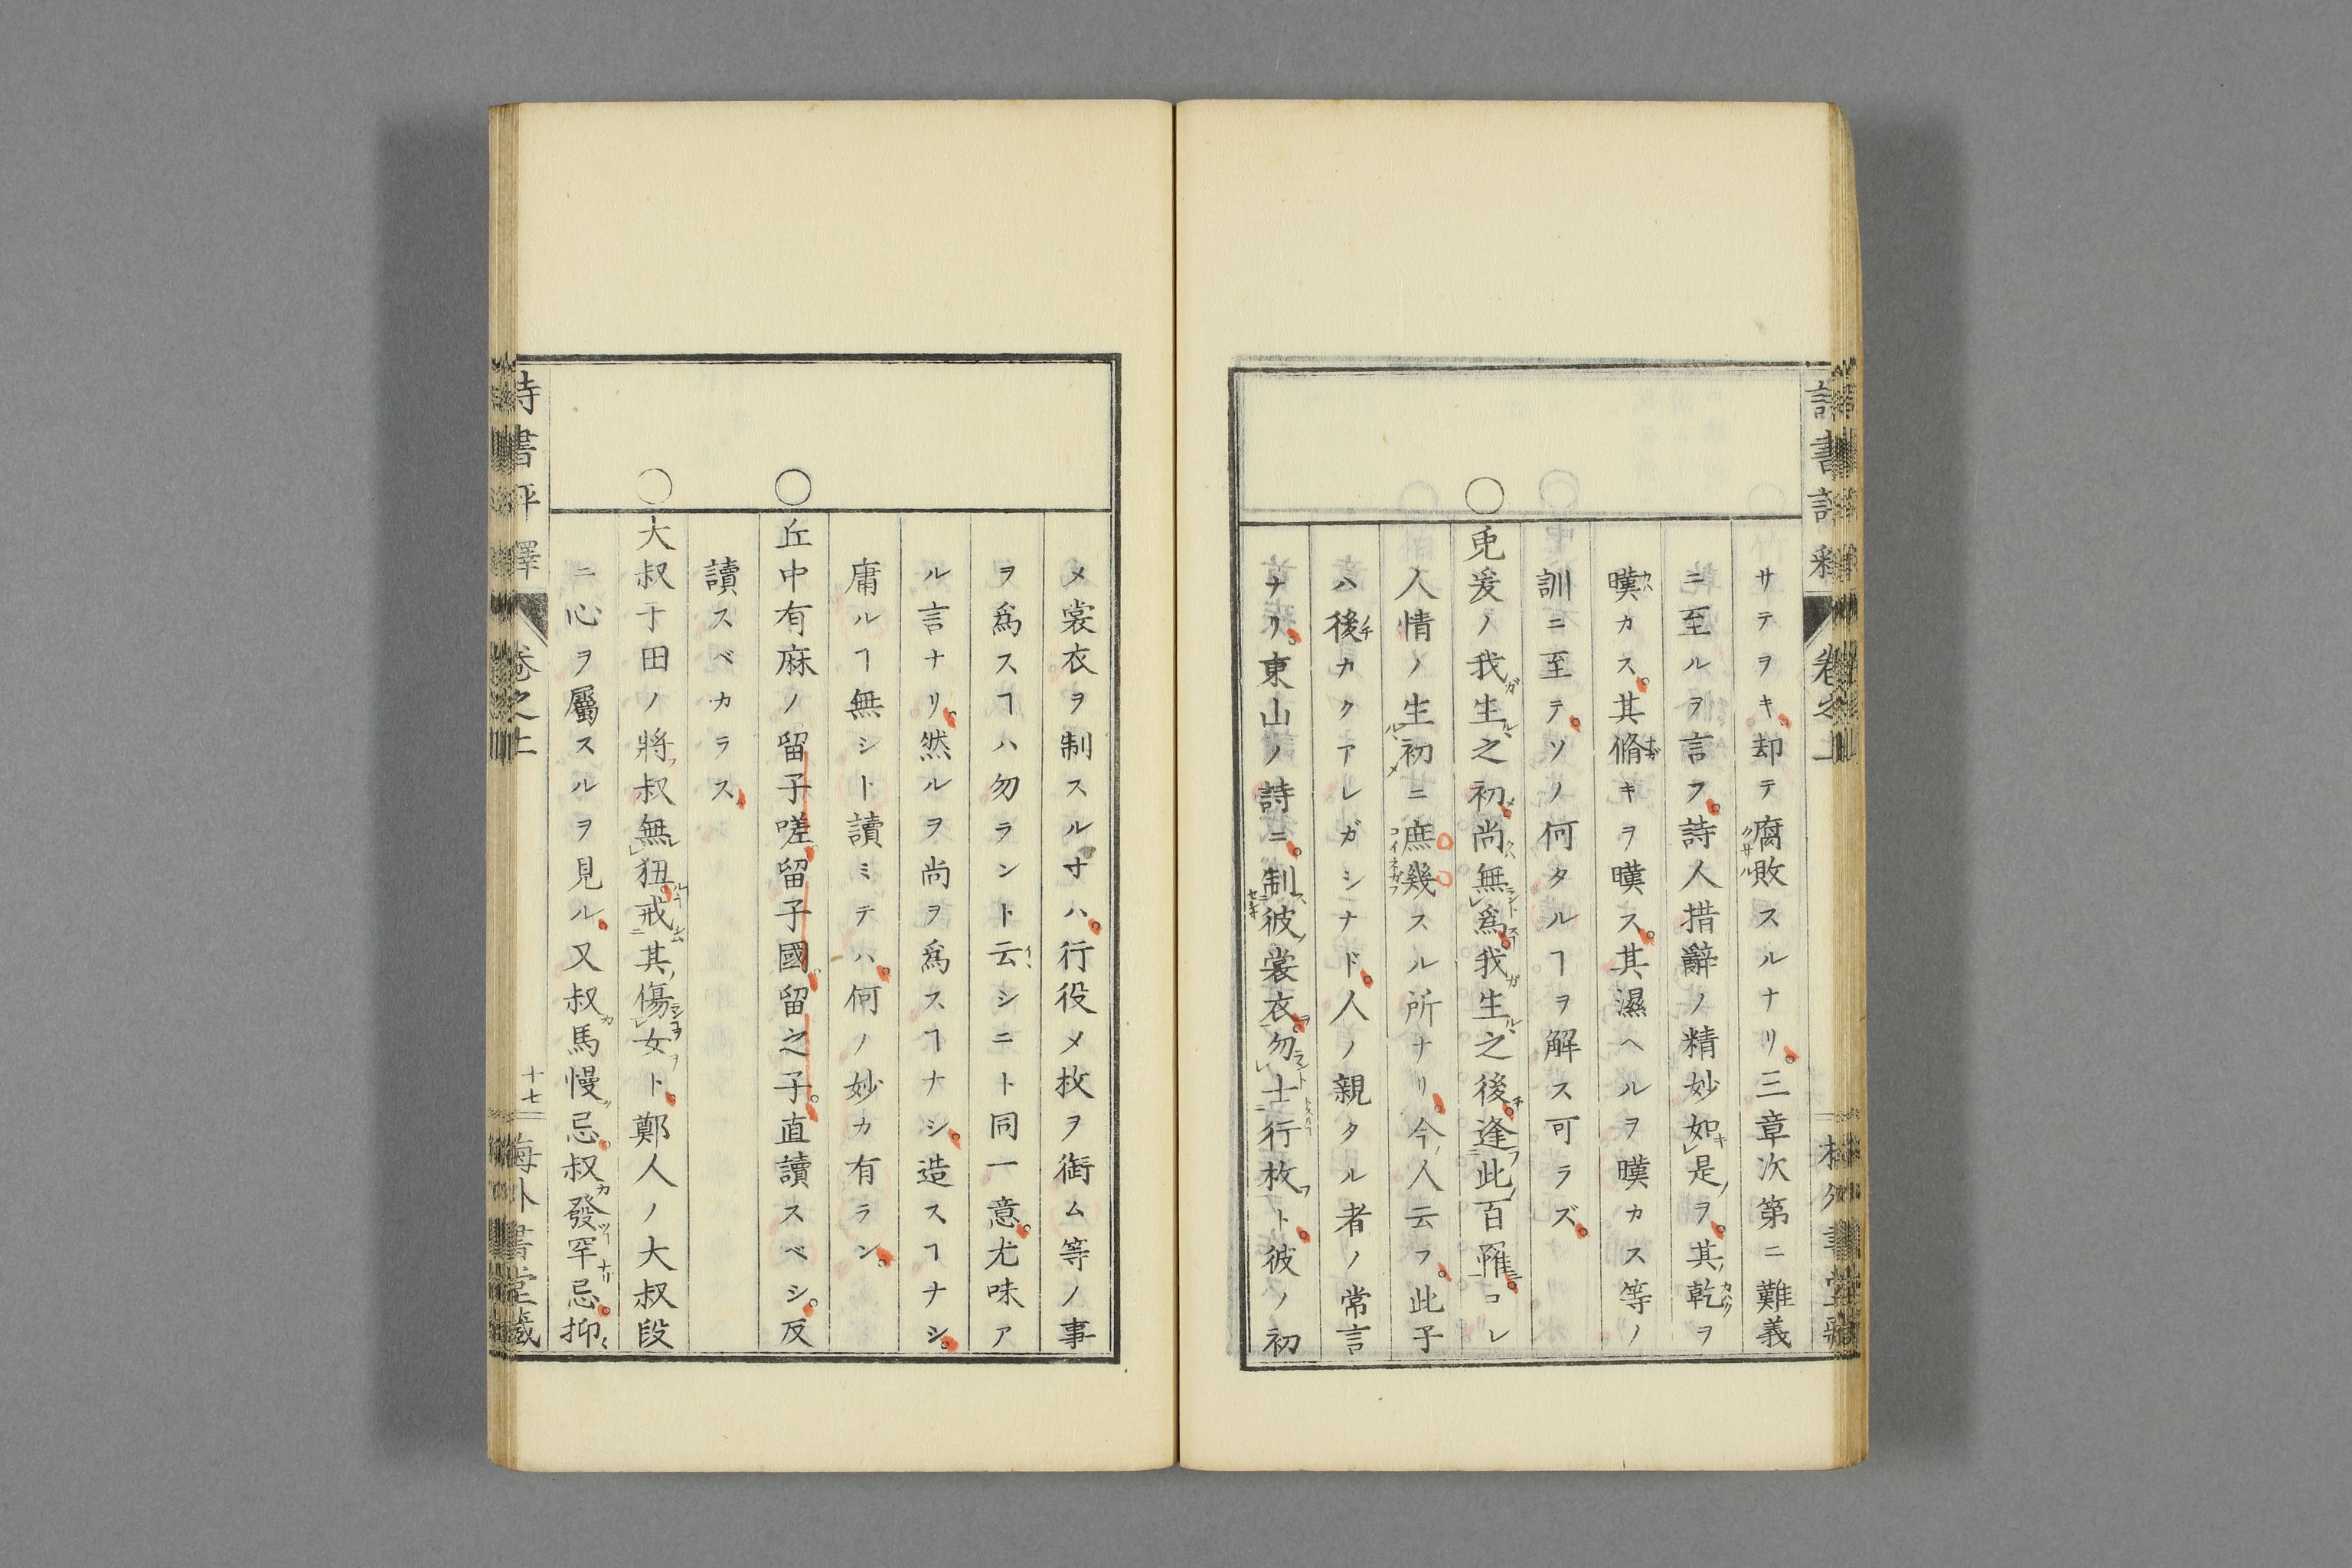 サテヲキ却テ腐敗スルナリ三章次第ニ難義
ニ至ルヲ言フ詩人措辭ノ精妙如是ヲ其乾ヲ
暵カス其脩キヲ暵ス其濕ヘルヲ暵カス等ノ
訓ニ至テソノ何タルヿヲ解ス可ラズ
○兎爰ノ我生之初尚無爲我生之後逢此百罹コレ
人情ノ生初ニ庶幾スル所ナリ今人云フ此子
ハ後カクアレガシナド人ノ親タル者ノ常言
ナリ東山ノ詩ニ制彼裳衣勿士行枚ト彼ノ初
メ裳衣ヲ制スル寸ハ行役メ枚ヲ銜ム等ノ事
ヲ爲スヿハ勿ラント云シニト同一意尤味ア
ル言ナリ然ルヲ尚ヲ爲スヿナシ造スヿナシ
庸ルヿ無シト讀ミテハ何ノ妙カ有ラン
○丘中有麻ノ留子嗟留子國留之子直讀スベシ反
讀スベカラス
○大叔于田ノ將叔無狃戒其傷女ト鄭人ノ大叔段
ニ心ヲ屬スルヲ見ル又叔馬慢忌叔發罕忌抑
詩書評釋
卷之上
十七